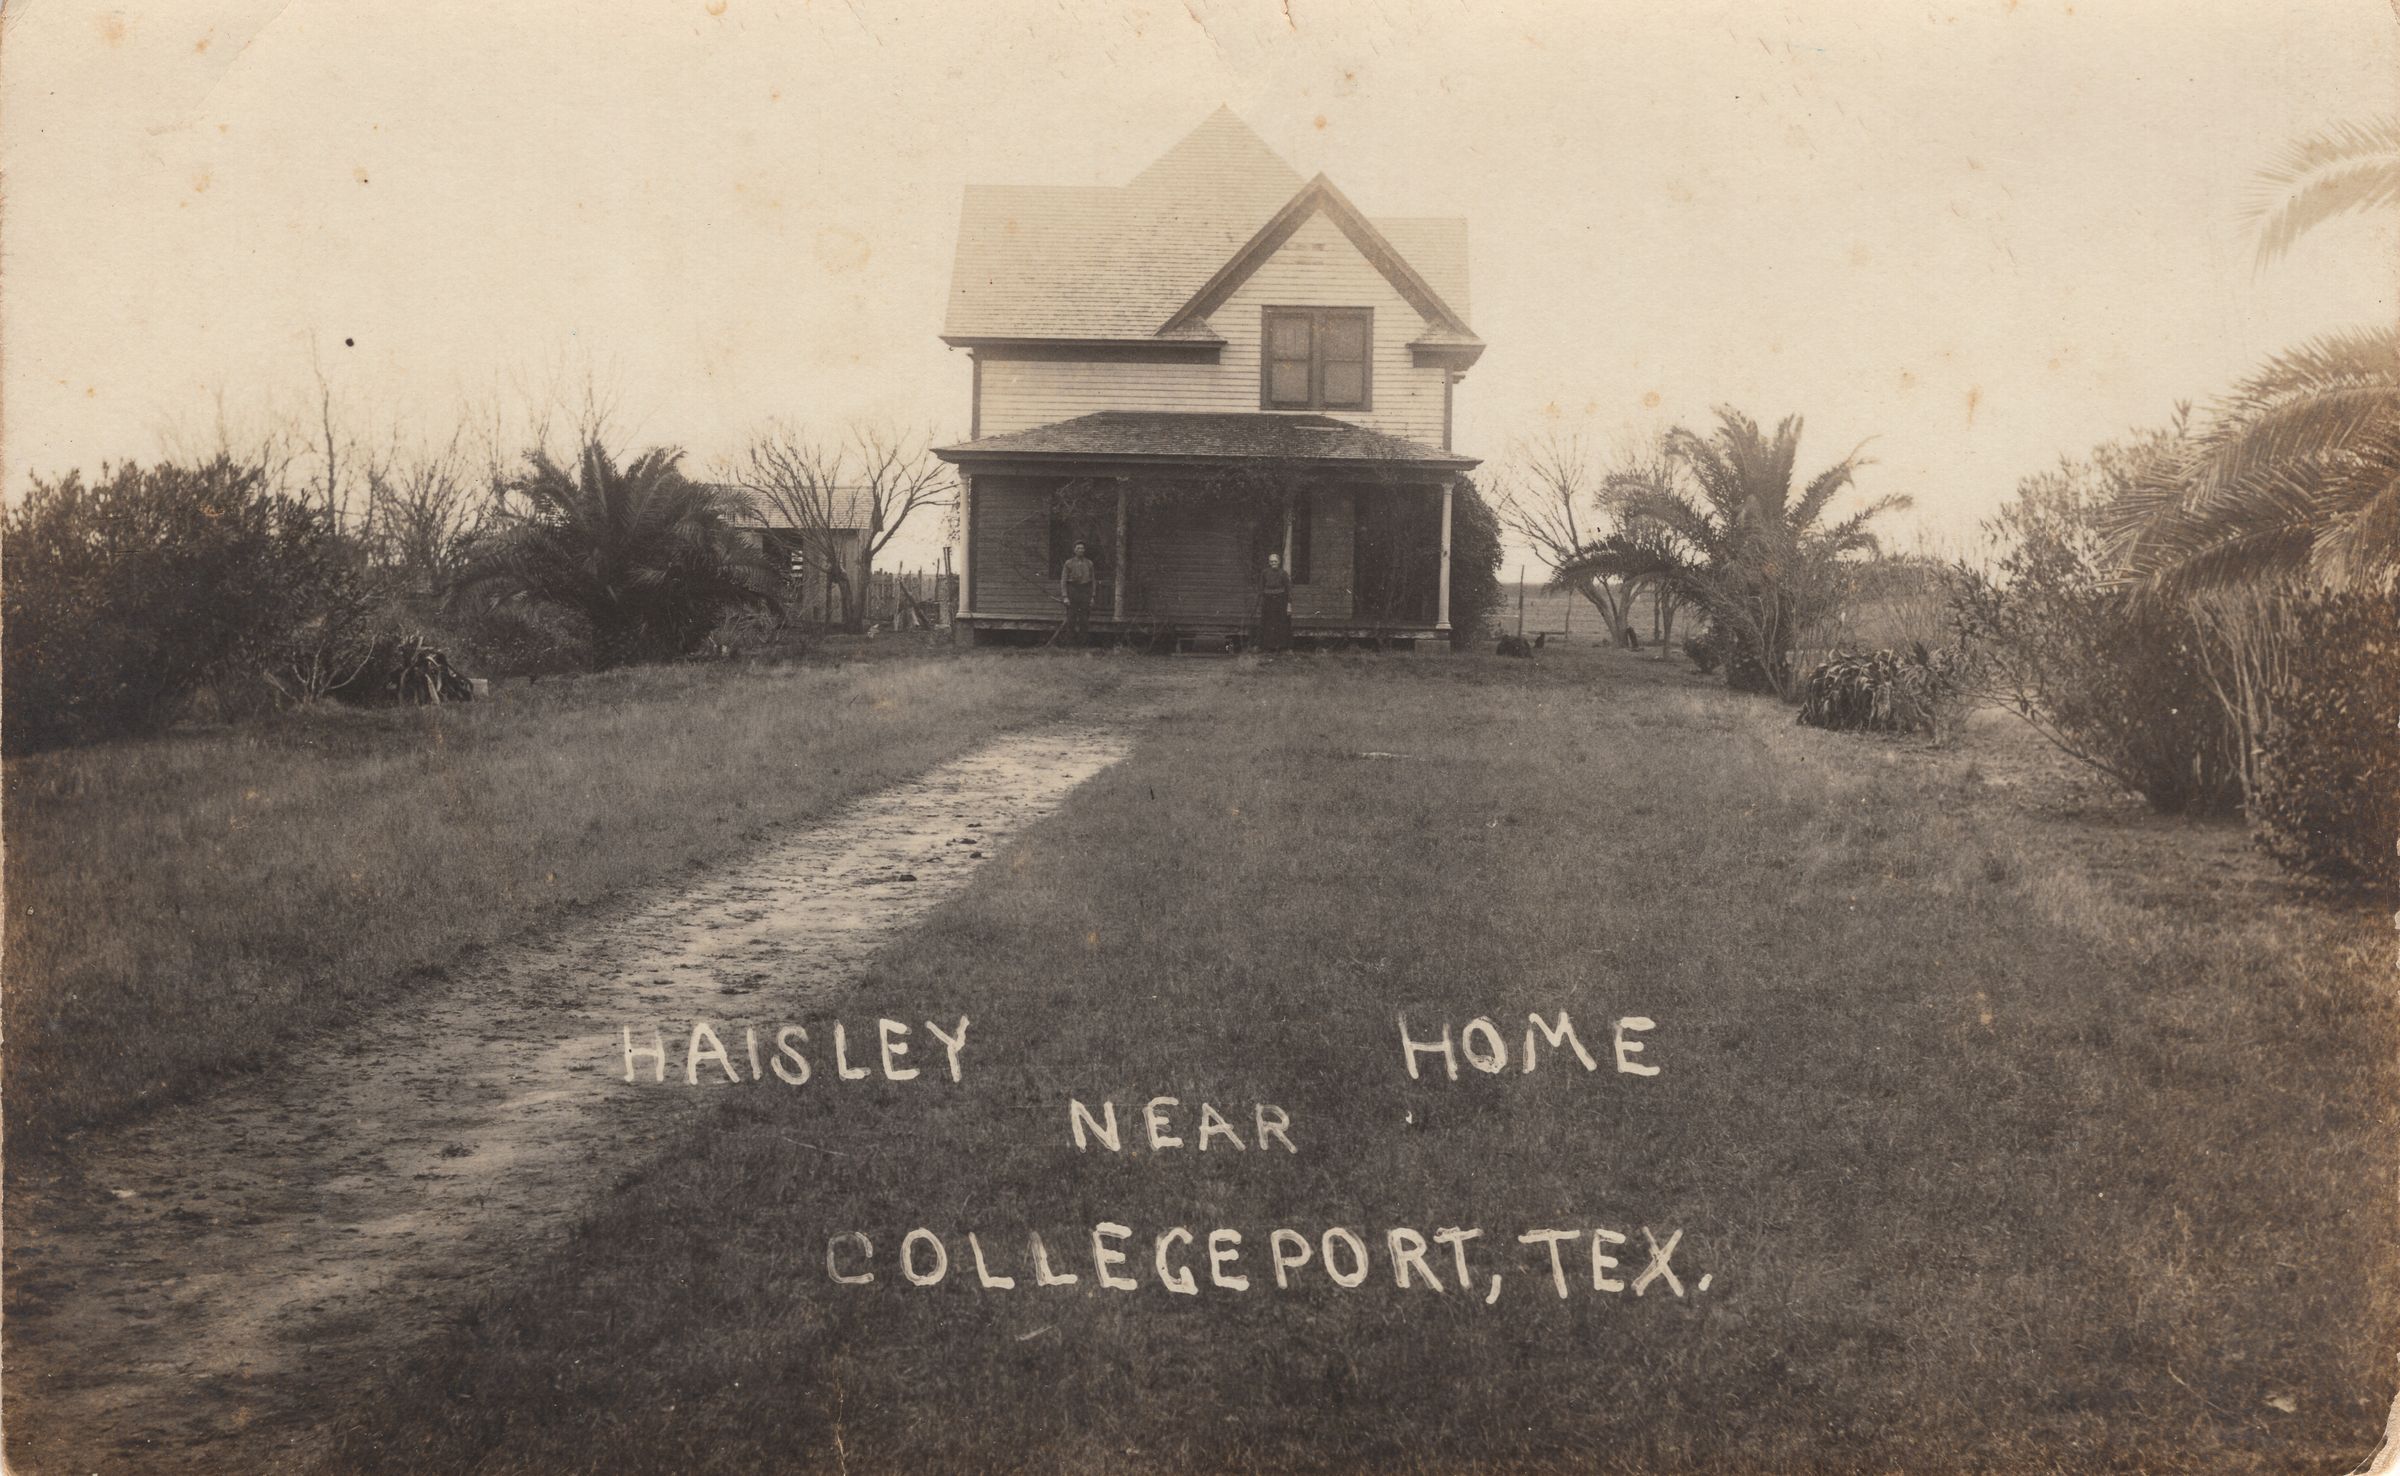 HAISLEY HOME
NEAR
COLLEGEPORT, TEX.